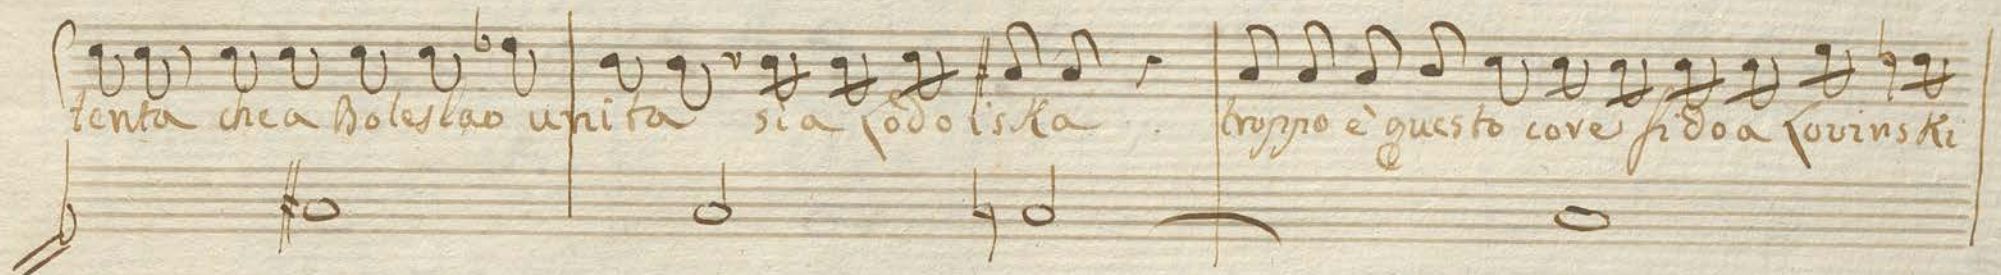 tenta che a Boleslao unita sia Lodoiska troppo è questo core fido a Lovinski